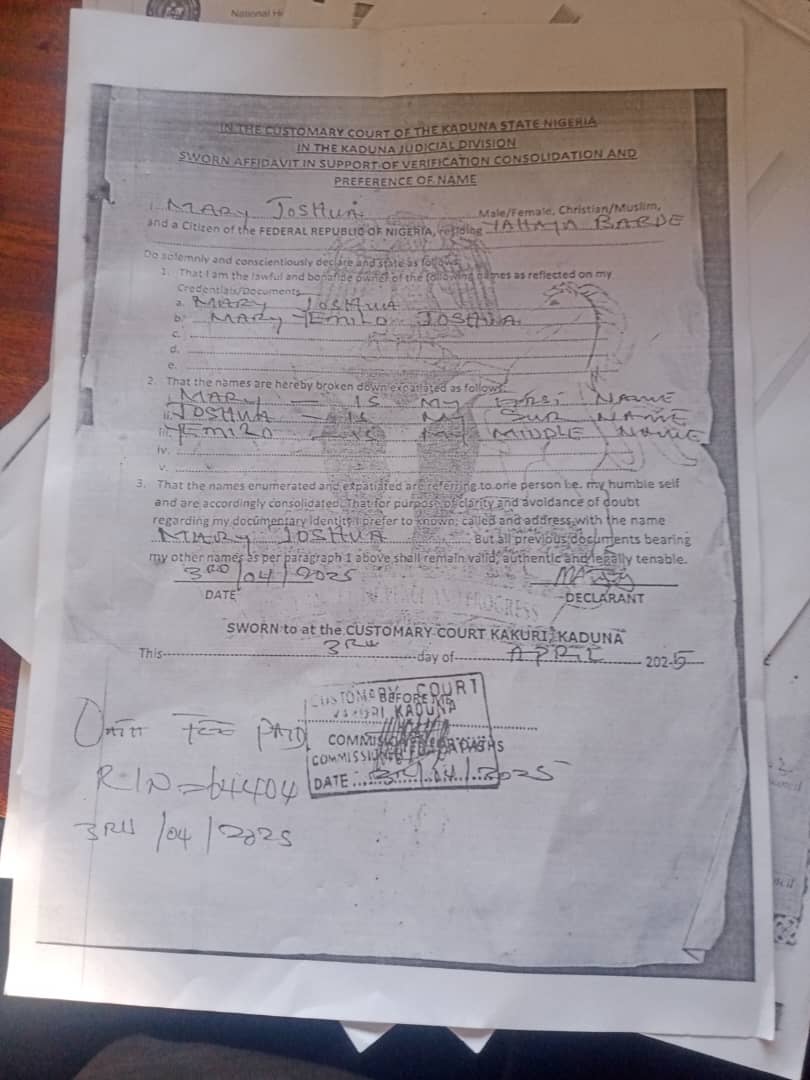 National
IN THE CUSTOMARY COURT OF THE KADUNA STATE NIGERIA
IN THE KADUNA JUDICIAL DIVISION
SWORN AFFIDAVIT IN SUPPORT OF VERIFICATION CONSOLIDATION AND
PREFERENCE OF NAME
I MARY JOSHUA Male/Female, Christian/Muslim,
and a Citizen of the FEDERAL REPUBLIC OF NIGERIA, residing YAHAYA BARDE
Do solemnly and conscientiously declare and state as follows
1. That I am the lawful and bonafide owner of the following names as reflected on my
Credentials/Documents
a. MARY JOSHUA
b. MARY YEMILO JOSHUA
c.
d.
e.
2. That the names are hereby broken down expatiated as follows:
i. MARY - IS MY FIRST NAME
ii. JOSHUA - IS MY SUR NAME
iii. YEMILO - IS MY MIDDLE NAME
iv.
v.
3. That the names enumerated and expatiated are referring to one person i.e. my humble self
and are accordingly consolidated. That for purpose of clarity and avoidance of doubt
regarding my documentary identity I prefer to known, called and address with the name
MARY JOSHUA But all previous documents bearing
my other names as per paragraph 1 above shall remain valid, authentic and legally tenable.
3RD/04/2025
DATE DECLARANT
SWORN to at the CUSTOMARY COURT KAKURI, KADUNA
This 3RD day of APRIL 2025
CUSTOMARY COURT
BEFORE ME
KADUNA
COMMISSIONER FOR OATHS
COMMISSIONER
DATE 3RD/04/2025
OATH FEE PAID
R/N=64404
3RD/04/2025